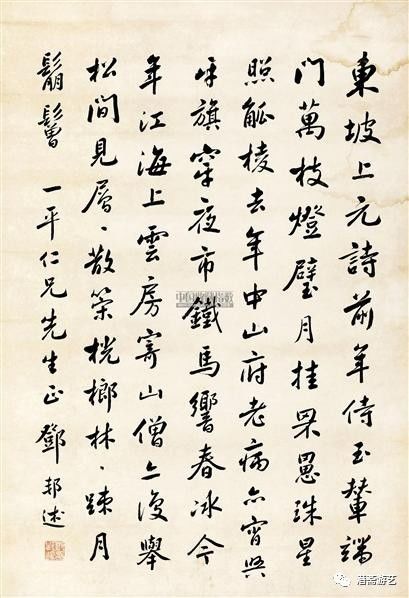 東坡上元詩前年侍玉輦端
門萬枝燈璧月挂罘罳珠星
照觚棱去年中山府老病亦宵興
牙旗穿夜市鐵馬響春冰今
年江海上雲房寄山僧亦復舉
松間見層、散策桄榔林、疎月
鬅鬙 一平仁兄先生正 鄧邦述
潜斋游艺